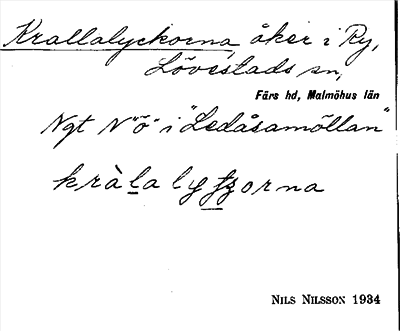 Krallalyckorna, åker i Ry,
Lövestads sn,
Färs hd, Malmöhus län
Ngt N "ö" i "Ledåsamöllan"
kràlalyʃʒorna
NILS NILSSON 1934